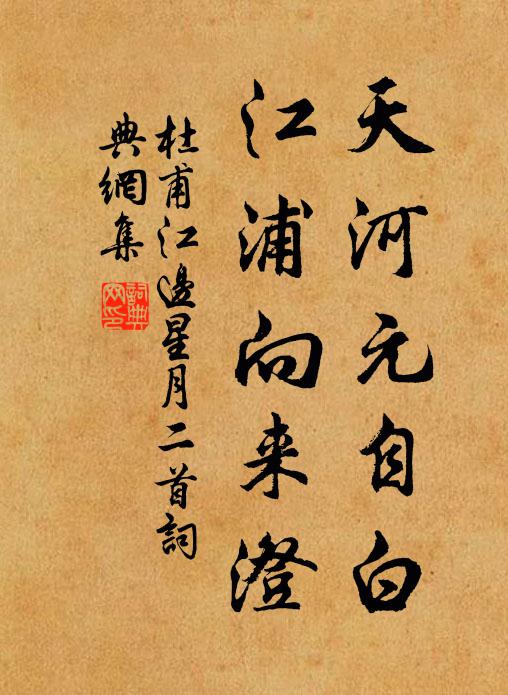 天河元自白
江浦向来澄
杜甫江邊星月二首詞
典網集
詞典
网印